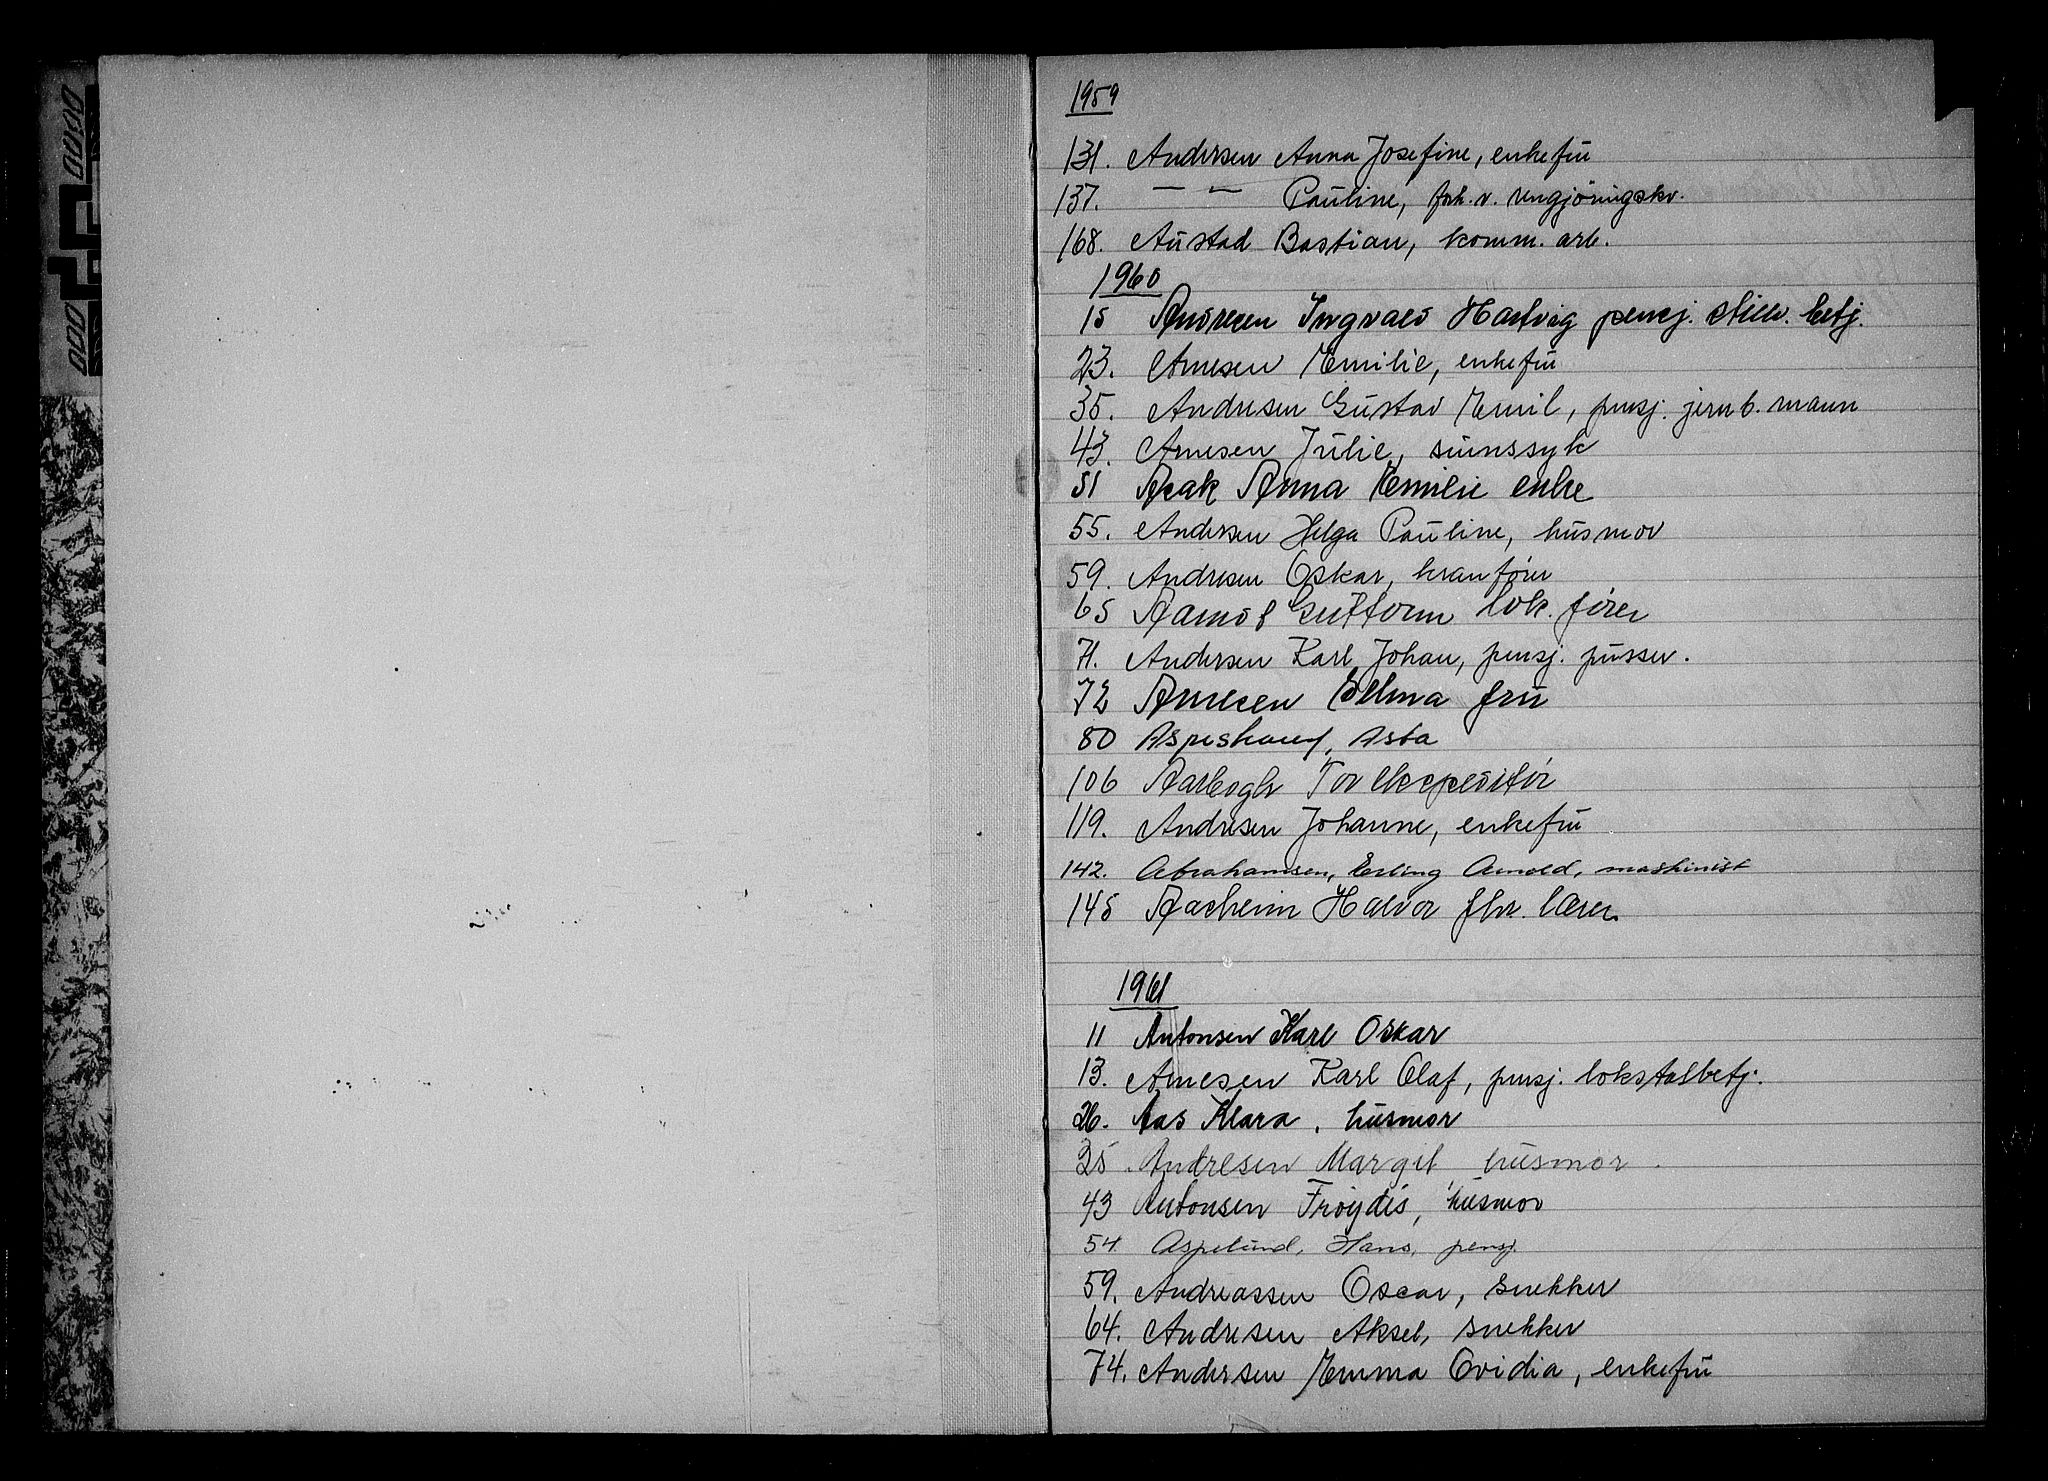 1959
131. Andersen Anna Josefine, enkefru
137. — " — Pauline, forh. v. rengjöringskv.
168. Austad Bastian, komm. arb.
1960
15 Andresen Ingvald Hartvig pensj. stillv. betj.
23. Arnesen Emilie, enkefru
35. Andresen Gustav Emil, pensj. jernb. mann
43. Arnesen Julie, sinnssyk
51 Anna Emilie enke
55. Andersen Helga Pauline, husmor
59. Andresen Oskar, kranfører
65 Aamot Guttorm lok. fører
71. Andersen Karl Johan, pensj. pusser.
72 Arnesen fru
80 Asta
106 Tor ekspeditør
119. Andresen Johanne, enkefru
142. Abrahamsen, Erling Arnold, maskinist
145 Aasheim Halvor fhv. lærer
1961
11 Antonsen Karl Oskar
13. Arnesen Karl Olaf, pensj. lokstalbetj.
26. Aas Klara, husmor
35. Andresen Margit husmor.
43 Antonsen Frøydis, husmor
54. Aspelund, Hans, pensj.
59. Andreassen Oscar, snekker
64. Andresen Aksel, snekker
74. Andersen Emma Ovidia, enkefru